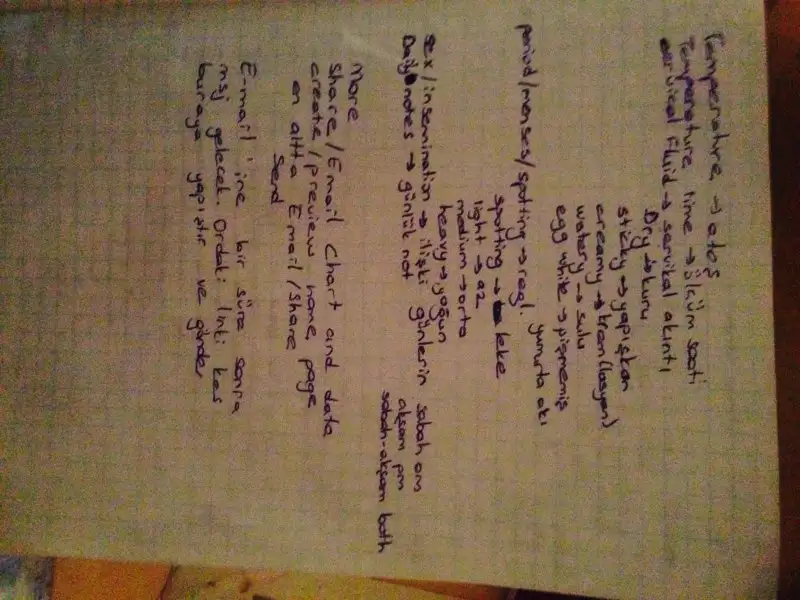 Temperature → ateş
Temperature time → ölçüm saati
servical fluid → servikal akıntı
Dry → kuru
sticky → yapışkan
creamy → krem (losyon)
watery → sulu
egg white → pişmemiş yumurta akı
period/menses/spotting → regl.
spotting → leke
light → az
medium → orta
heavy → yoğun
sex/insemination → ilişki günlerin sabah am
akşam pm
sabah-akşam both
Daily notes → günlük not
More
Share/Email Chart and data
create/preview home page
en altta Email/Share
Send
E-mail'ine bir süre sonra
msj gelecek. Ordaki linki kes
buraya yapıştır ve gönder